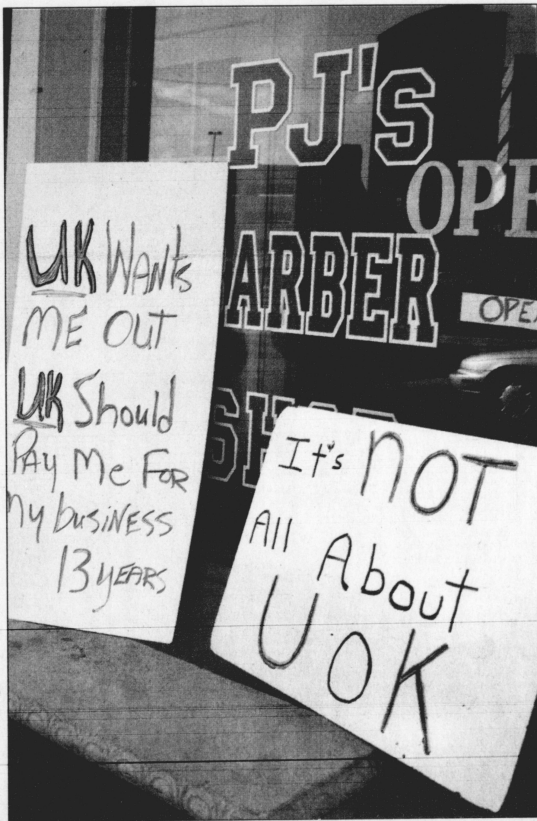 PJ's
OPE
ARBER
OPE
UK WANTS
ME OUT
UK Should
PAY Me FOR
My business
13 YEARS
It's NOT
All About
U OK